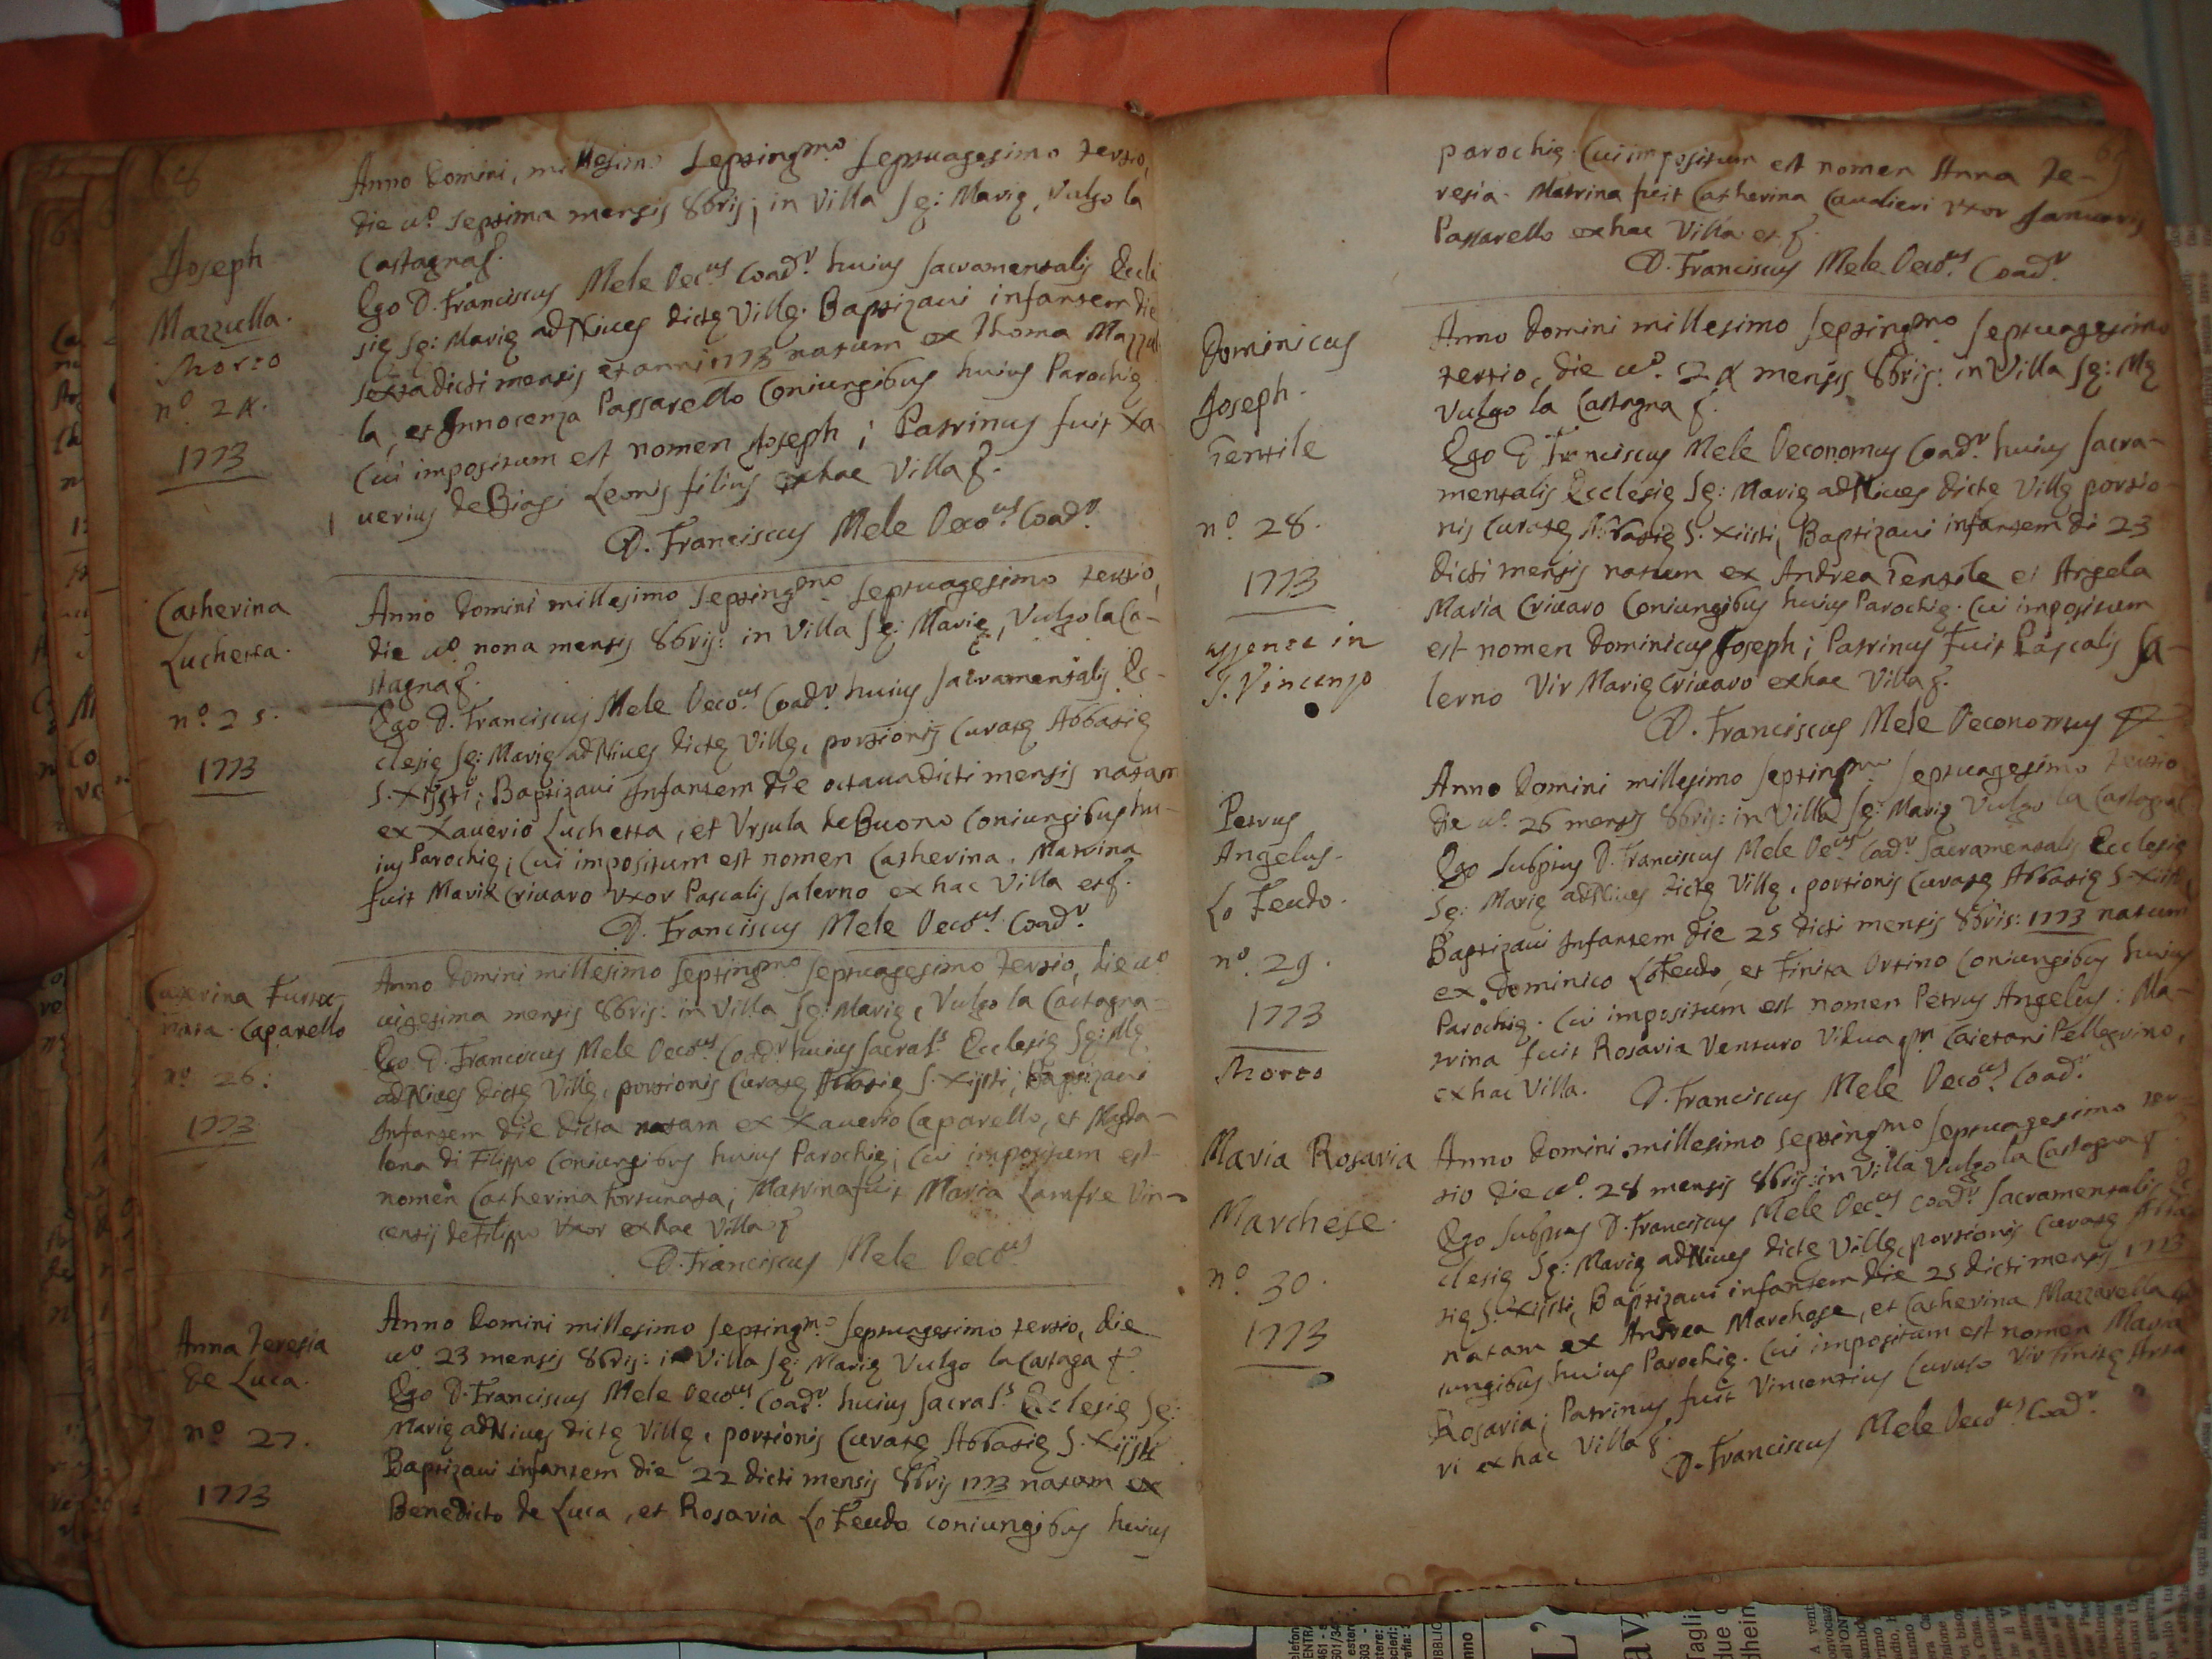 68
Joseph
Mazzulla.
Morto
nº 24.
1773
Anno Domini, millesimo septingmo septuagesimo tertio,
die uº septima mensis 8bris; in Villa Sę: Marię, Vulgo la
Castagna
Ego D. Franciscus Mele Oecus Coadr huius sacramentalis Eccle
się Sę: Marię ad Nives dictę Villę. Baptizavi infantem die
sexta dicti mensis et anni 1773 natum ex Thoma Mazzul
la, et Innocenza Passarello Coniungibus huius Parochię
Cui impositum est nomen Joseph; Patrinus fuit Xa
uerius de Biasi Leonis filius ex hac Villa
D. Franciscus Mele Oecous Coadr
Catherina
Luchetta.
nº. 25.
1773
Anno Domini millesimo septingmo septuagesimo tertio,
die uº. nona mensis 8bris: in Villa Sę: Marię, Vulgo la Ca-
stagna
Ego D. Franciscus Mele Oecous Coadr huius sacramentalis Ec-
clesię Sę: Marię ad Nives dictę Villę, portionis Curatę Abbatię
S. Xijsti; Baptizaui Infantem die octaua dicti mensis natam
ex Xauerio Luchetta, et Vrsula de Buono Coniungibus hu-
ius Parochię; Cui impositum est nomen Catherina. Matrina
fuit Maria Criuaro Vxor Pascalis Salerno ex hac Villa et
D. Franciscus Mele Oecous Coadr
Caterina Fortu
nata Caparello
nº 26:
1773
Anno Domini millesimo septingmo septuagesimo tertio, die uº
uigesima mensis 8bris: in Villa Sę: Marię, Vulgo la Castagna
Ego D. Franciscus Mele Oecous Coadr huius sacrals Ecclesię Sę: Mę
ad Nives dictę Villę, portionis Curatę Abbatię S. Xijsti; Baptizaui
Infantem die dicta natam ex Xauerio Caparello, et Magda-
lena di Filippo Coniungibus huius Parochię; Cui impositum est
nomen Catherina Fortunata; Matrina fuit Maria Lamfre Vin-
centij de Filippo Vxor ex hac Villa
D. Franciscus Mele Oecous
Anna Teresia
de Luca.
nº 27.
1773
Anno Domini millesimo septingmo septuagesimo tertio, die
uº 23 mensis 8bris: in Villa Sę: Marię Vulgo la Castaga
Ego D. Franciscus Mele Oecous Coadr huius sacrals Ecclesię Sę:
Marię ad Nives dictę Villę, portionis Curatę Abbatię S. Xijsti
Baptizaui infantem die 22 dicti mensis 8bris 1773 natam ex
Benedicto de Luca, et Rosaria Lo Feudo coniungibus huius
parochię. Cui impositum est nomen Anna Te-
resia. Matrina fuit Catherina Caualieri Vxor Januarij
Passarello ex hac Villa et
D. Franciscus Mele Oecous Coadr
Dominicus
Joseph.
Gentile
nº. 28.
1773
in
S. Vincenzo
Anno Domini millesimo septingmo septuagesimo
tertio, die uº. 24 mensis 8bris: in Villa Sę: Mę
Vulgo la Castagna
Ego D. Franciscus Mele Oeconomus Coadr huius sacra-
mentalis Ecclesię Sę: Marię ad Nives dictę Villę portio-
nis Curatę Abbatię S. Xijsti, Baptizaui infantem di 23
dicti mensis natum ex Andrea Gentile et Angela
Maria Criuaro Coniungibus huius Parochię. Cui impositum
est nomen Dominicus Joseph; Patrinus Fuit Pascalis Sa-
lerno Vir Marię Criuaro ex hac Villa
D. Franciscus Mele Oeconomus
Petrus
Angelus.
Lo Feudo.
nº. 29.
1773
Morto
Anno Domini millesimo septingmo septuagesimo tertio
die uº. 26 mensis 8bris: in Villa Sę: Marię Vulgo la Castagna
Ego subptus D. Franciscus Mele Oecus Coadr sacramentalis Ecclesię
Sę: Marię ad Nives dictę Villę, portionis Curatę Abbatię S. Xijsti,
Baptizaui Infantem die 25 dicti mensis 8bris: 1773 natum
ex Dominico Lo Feudo, et Finita Ortino Coniungibus huius
Parochię. Cui impositum est nomen Petrus Angelus: Ma-
trina fuit Rosaria Venturo Vidua qm Caietani Pellegrino,
ex hac Villa. D. Franciscus Mele Oecous Coadr
Maria Rosaria
Marchese.
nº 30.
1773
Anno Domini millesimo septingmo septuagesimo ter-
tio die uº. 28 mensis 8bris: in Villa Vulgo la Castagna
Ego subptus D. Franciscus Mele Oecus Coadr sacramentalis Ec
clesię Sę: Marię ad Nives dictę Villę, portionis Curatę Abba
tię S. Xijsti, Baptizaui infantem die 25 dicti mensis 1773
natam ex Andrea Marchese, et Catherina Mazzarella Co
iungibus huius Parochię. Cui impositum est nomen Maria
Rosaria; Patrinus fuit Vincentius Caruso Vir Finitę
ri ex hac Villa
D. Franciscus Mele Oecous Coadr